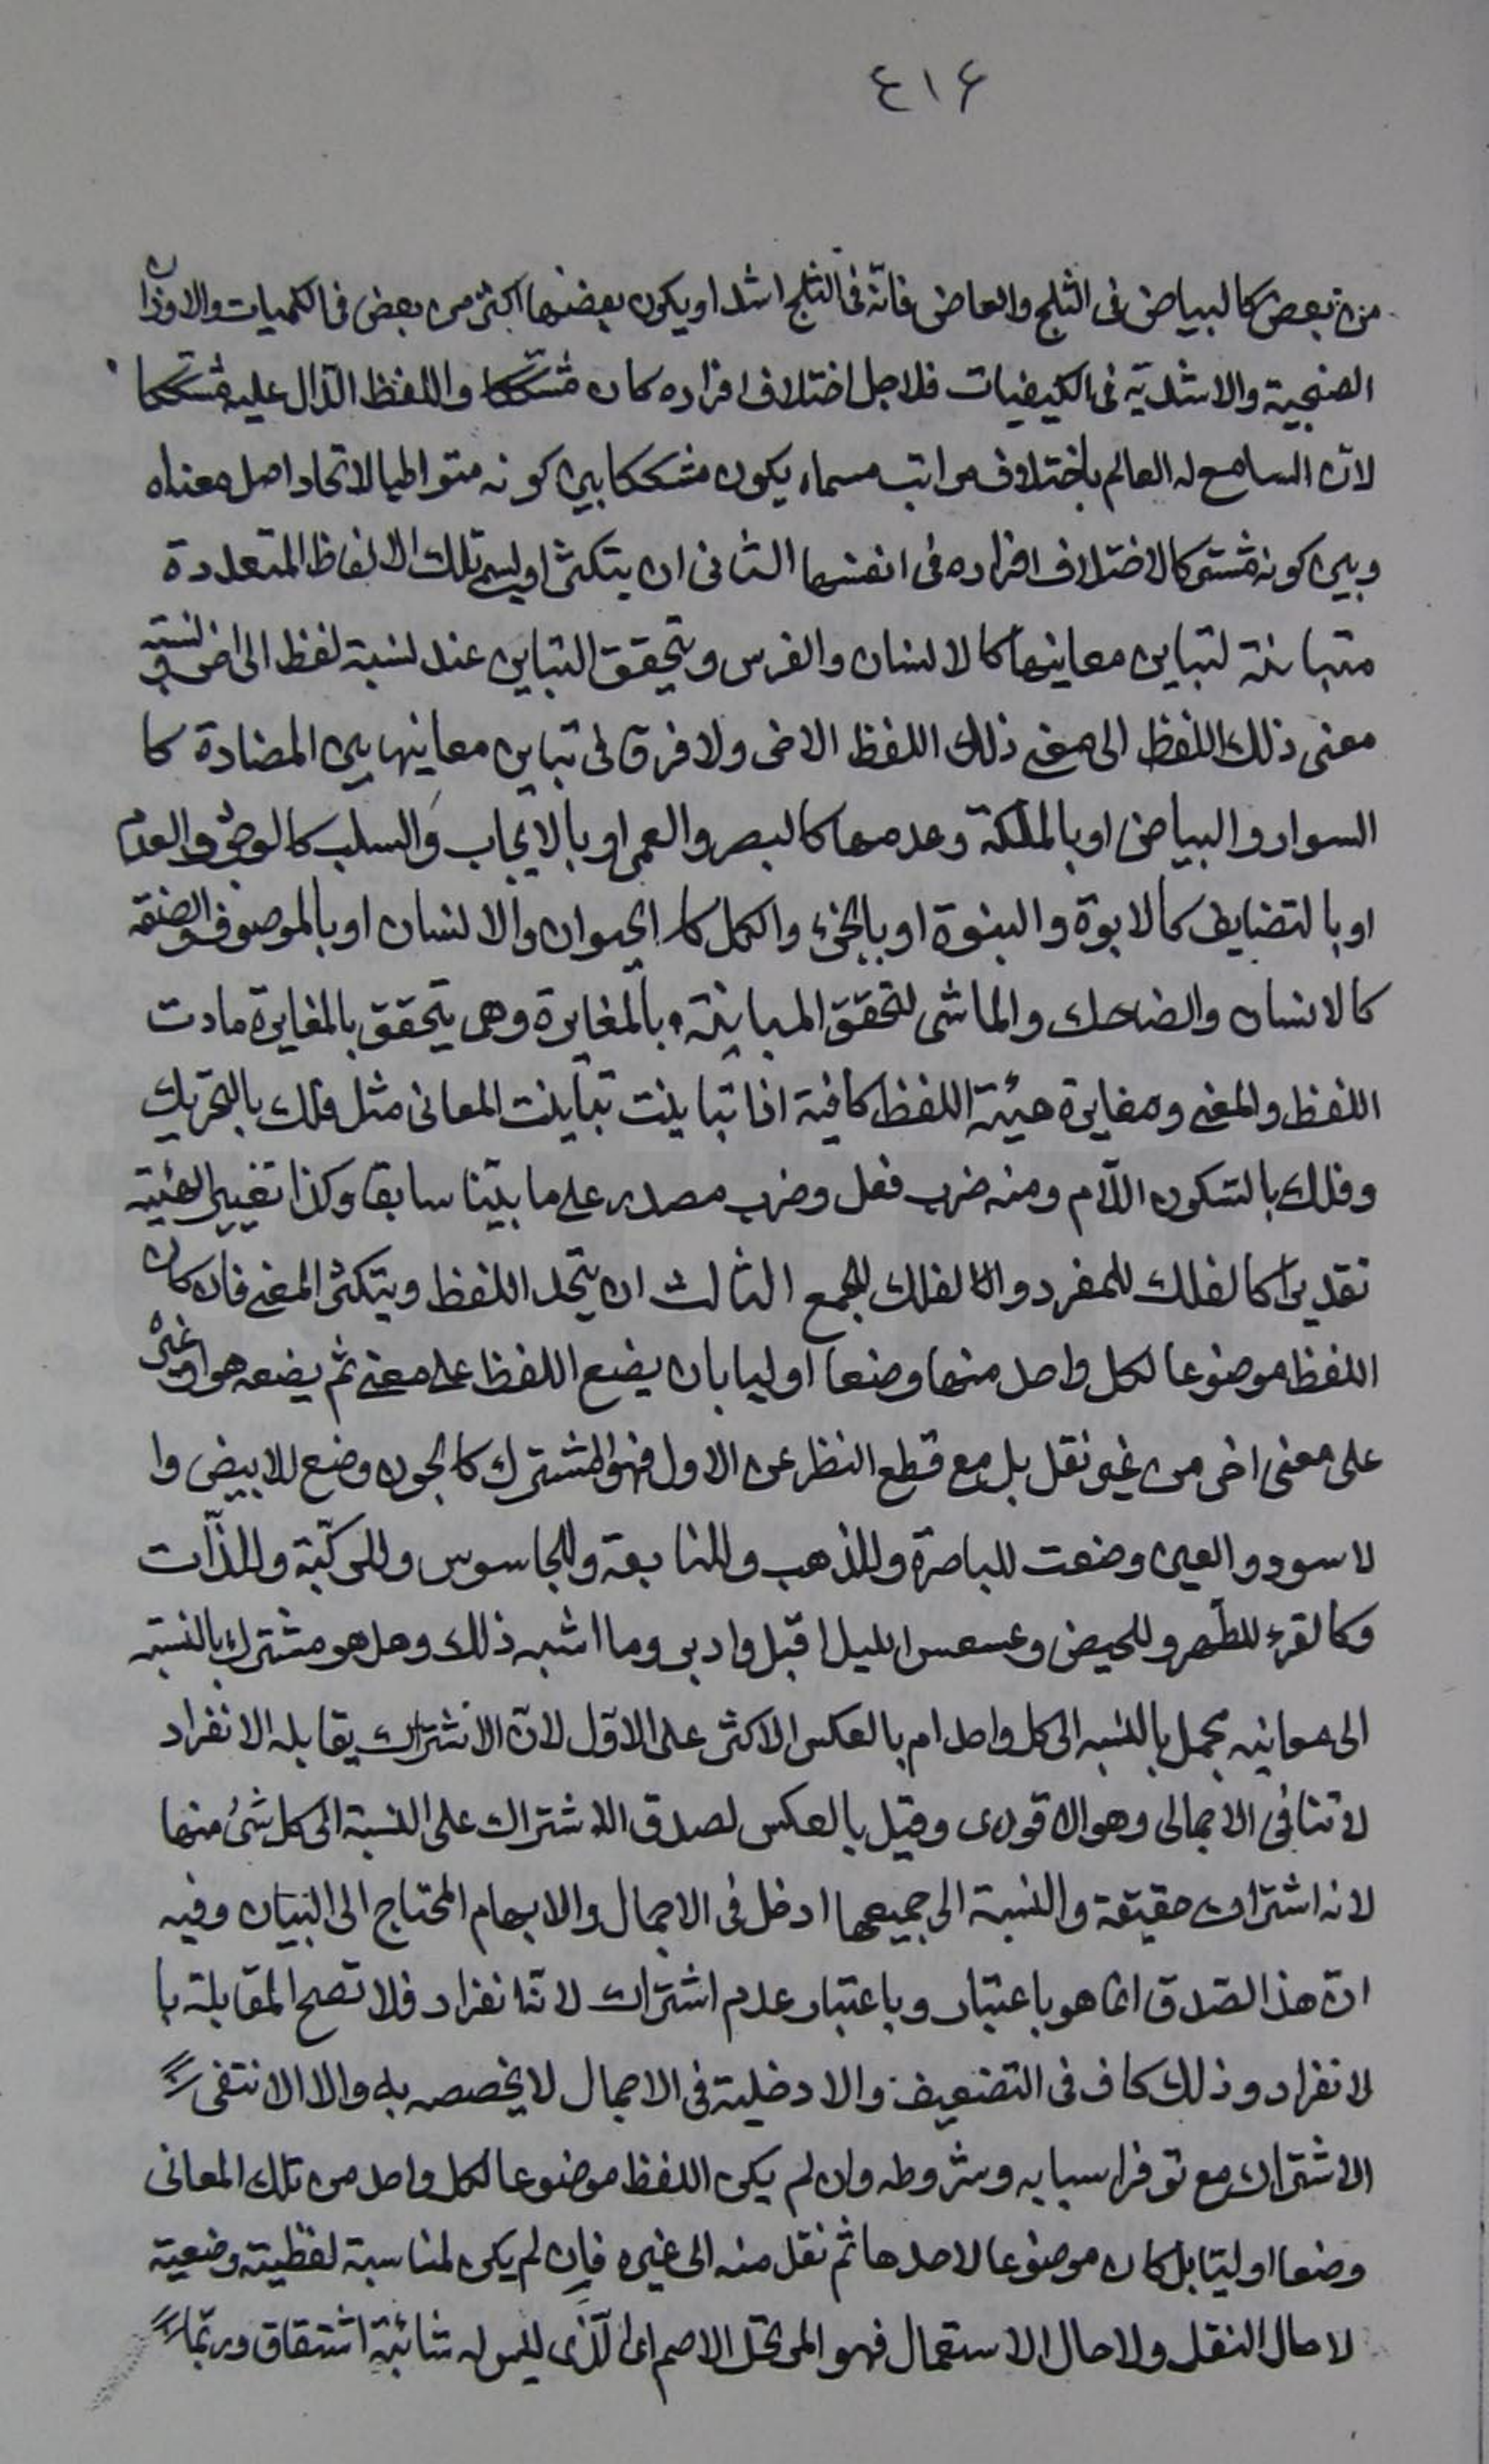 ٤١۶
من بعض كالبياض فى الثلج والعاج فانّه فى الثلج اشد او يكون بعضها اكثر من بعض فى الكميات والاوزان
الصنجية والاشديّة فى الكيفيات فلاجل اختلاف افراده كان مشككا واللفظ الدّال عليه مشككا
لانّ السامع له العالم باختلاف مراتب مسماه يكون مشككا بين كونه متواطيا لاتحاد اصل معناه
وبين كونه مشتركا لاختلاف افراده فى انفسها الثانى ان يتكثرا وليسم تلك الالفاظ المتعددة
متباينة لتباين معانيها كالانسان والفرس ويتحقق التباين عند نسبة لفظ الى اخر ونسبة
معنى ذلك اللفظ الى معنى ذلك اللفظ الاخر ولا فرق فى تباين معانيها بين المضادة كا
السواد والبياض او بالملكة وعدمها كالبصر والعمى او بالايجاب والسلب كالوجود والعدم
او بالتضايف كالابوة والبنوة او بالجزء والكل كالحيوان والانسان او بالموصوف والصفة
كالانسان والضاحك والماشى لتحقق المباينة بالمغايرة وهى يتحقق بالمغايرة مادت
اللفظ والمعنى ومغايرة هيئة اللفظ كافية اذا تباينت تباينت المعانى مثل فلك بالتحريك
وفلك بالسّكون اللّام ومنه ضرب فعل وضرب مصدر على ما بيّنا سابقا وكذا تغيير الهيئة
تقديرا كالفلك للمفرد والفلك للجمع الثالث ان يتحد اللفظ ويتكثر المعنى فان كان
اللفظ موضوعا لكل واحد منها وضعا اوليا بان يضع اللفظ على معنى ثم يضعه هو او غيره
على معنى اخر من غير نقل بل مع قطع النظر عن الاول فهو المشترك كالجون وضع للابيض وا
لاسود والعين وضعت للباصرة وللذهب وللنابعة وللجاسوس وللركبّة وللذّات
وكالقرء للطّهر وللحيض وعسعس الليل اقبل وادبر وما اشبه ذلك وهل هو مشترك بالنسبة
الى معانيه مجمل بالنسبه الى كل واحد ام بالعكس الاكثر على الاوّل لانّ الاشتراك يقابله الانفراد
لا تنافى الاجمالى وهو الاقوى وقيل بالعكس لصدق الاشتراك على النسبة الى كل شىء منها
لانه اشتراك حقيقة والنسبة الى جميعها ادخل فى الاجمال والابهام المحتاج الى البيان وفيه
انّ هذا الصّدق انما هو باعتبار وباعتبار عدم اشتراك لانّه انفراد فلا تصح المقابلة با
لانفراد وذلك كاف فى التضعيف والادخلية فى الاجمال لا يخصصه به والا الانتفى
الاشتراك مع توفر اسبابه وشروطه وان لم يكن اللفظ موضوعا لكل واحد من تلك المعانى
وضعا اوليّا بل كان موضوعا لاحدها ثم نقل منه الى غيره فان لم يكن لمناسبة لفظيّة وضعية
لا حال النقل ولا حال الاستعمال فهو المرتجل الاصم اى الّذى ليس له شائبة اشتقاق وربّما